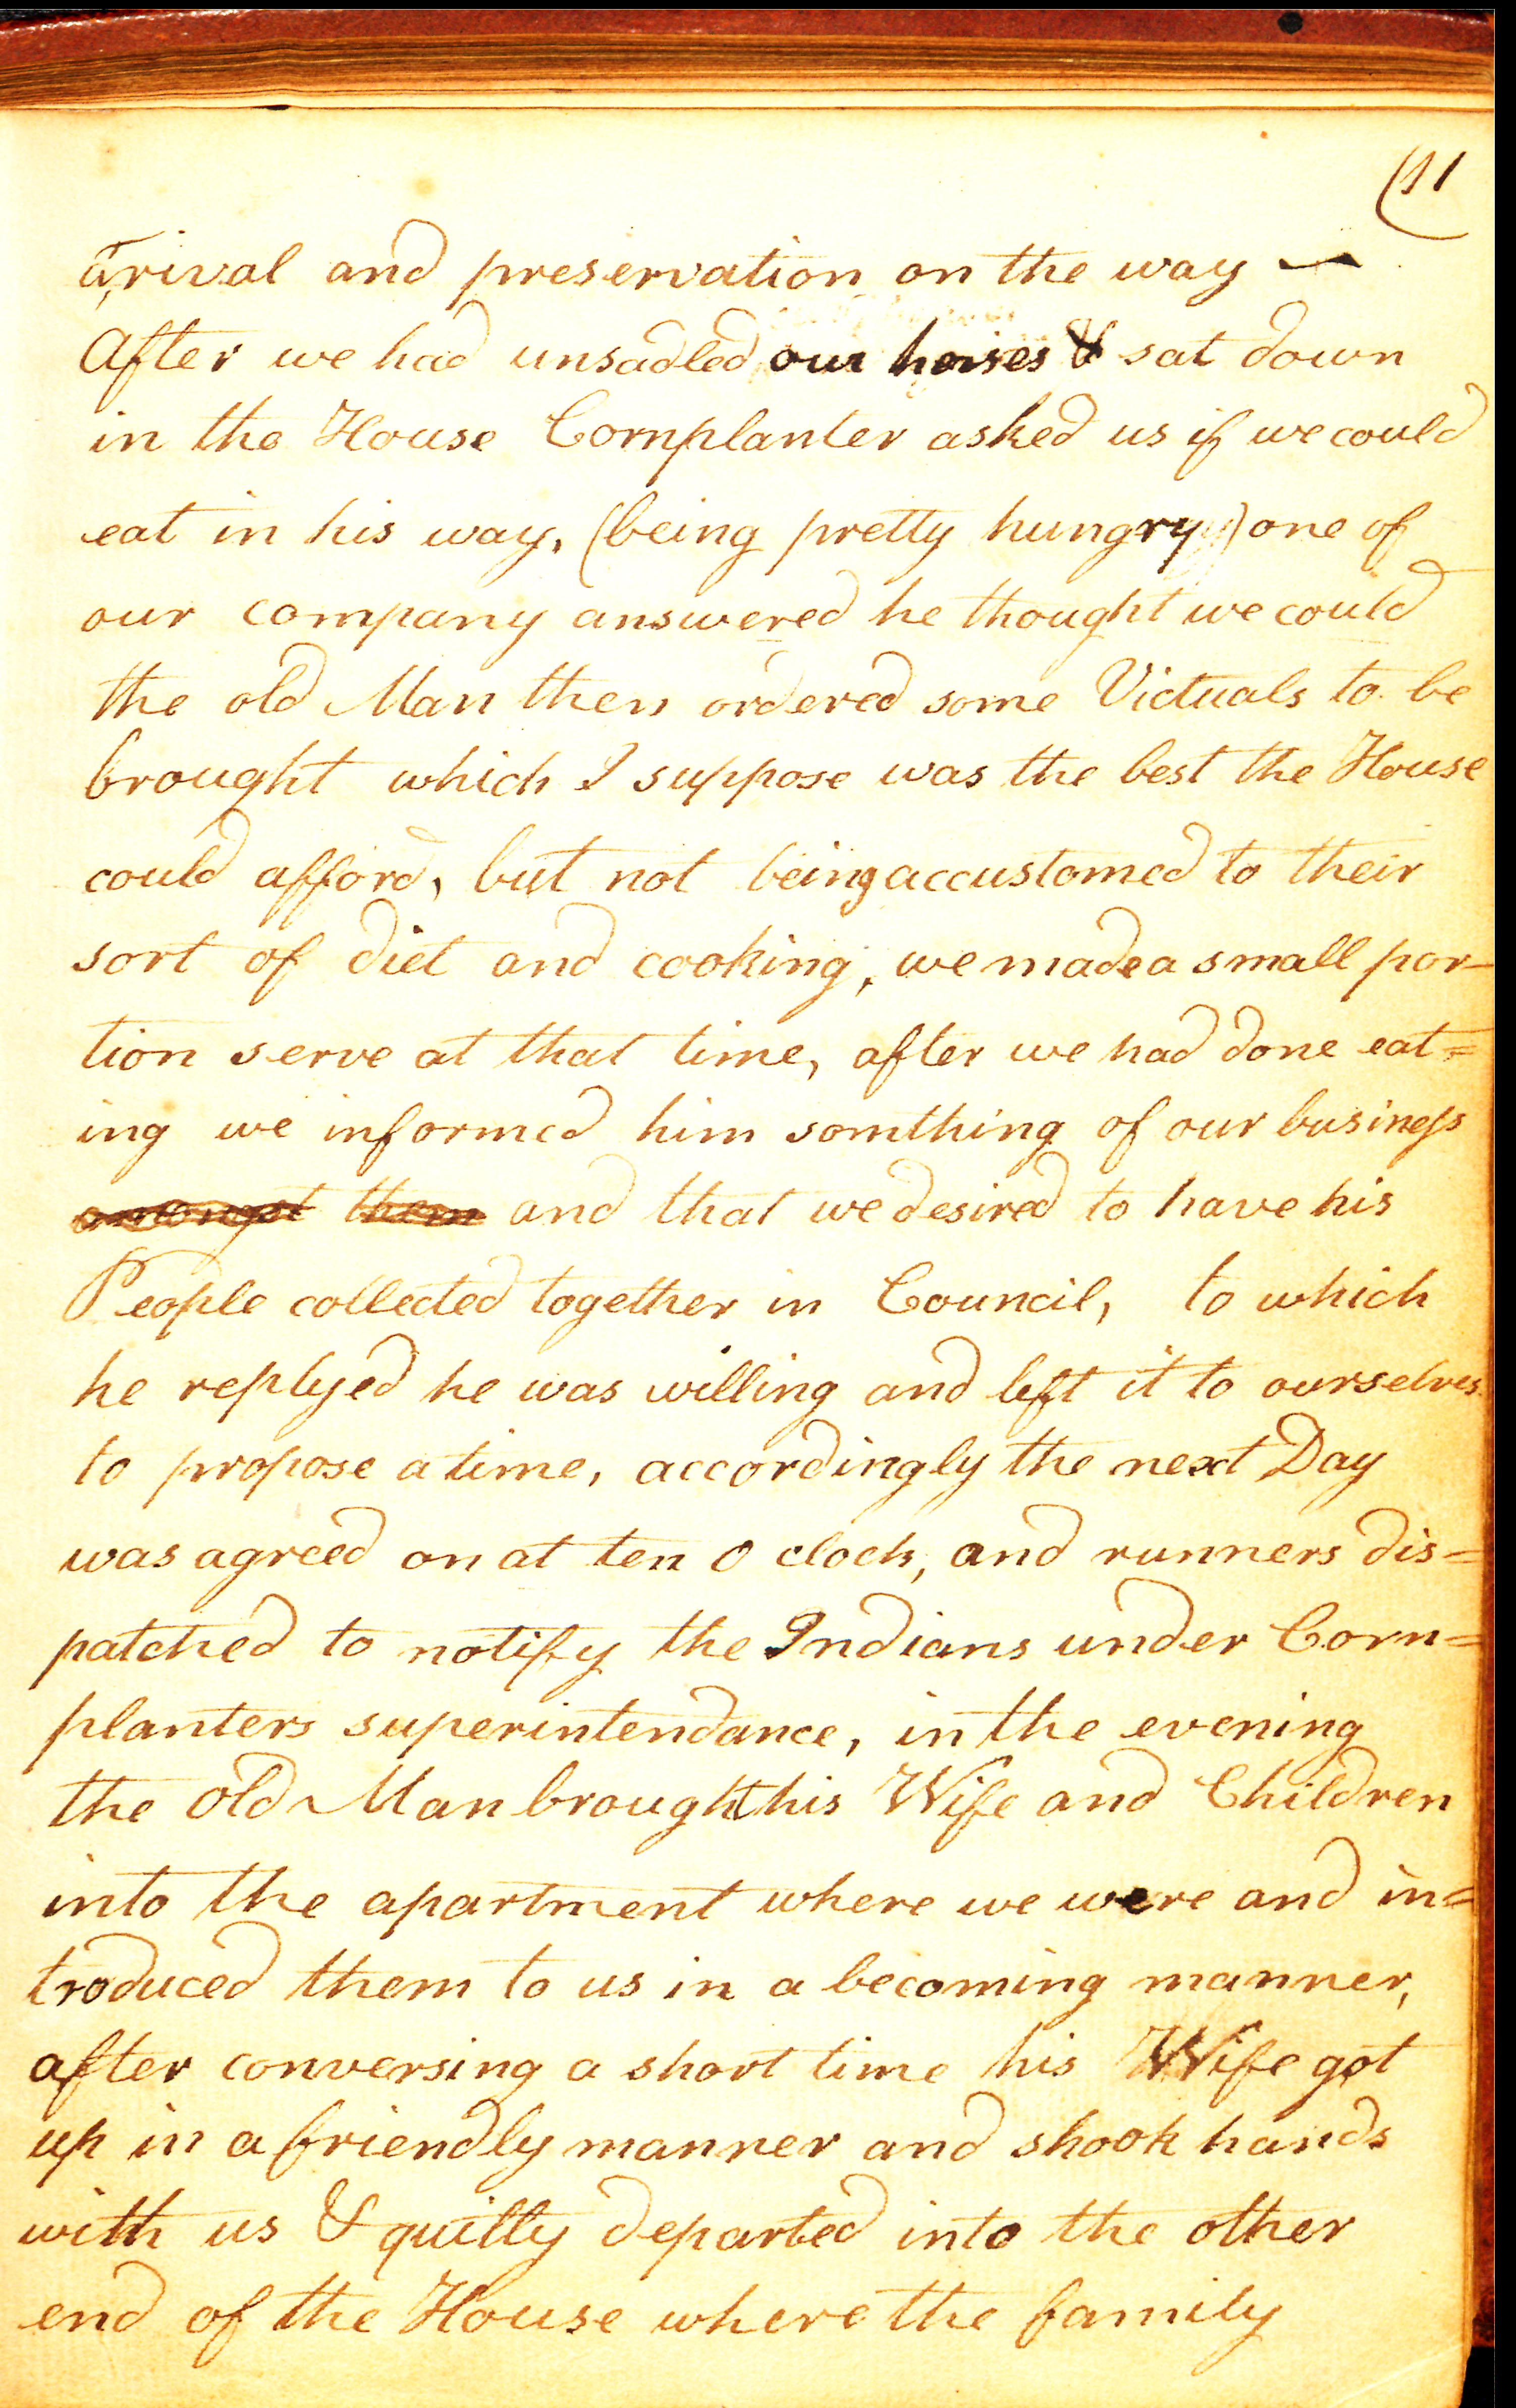 (11
arival and preservation on the way —
After we had unsadled our horses & sat down
in the House Cornplanter asked us if we could
eat in his way, (being pretty hungry) one of
our company answered he thought we could
the old Man then ordered some Victuals to be
brought which I suppose was the best the House
could afford, but not being accustomed to their
sort of diet and cooking, we made a small por-
tion serve at that time, after we had done eat=
ing we informed him somthing of our business
amongst them and that we desired to have his
People collected together in Council, to which
he replyed he was willing and left it to ourselves
to propose a time, accordingly the next Day
was agreed on at ten O clock, and runners dis=
patched to notify the Indians under Corn=
planters superintendance, in the evening
the old Man brought his Wife and Children
into the apartment where we were and in=
troduced them to us in a becoming manner,
after conversing a short time his Wife got
up in a friendly manner and shook hands
with us & quitly departed into the other
end of the House where the family